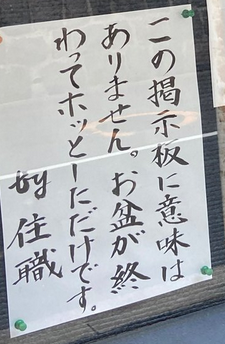 この掲示板に意味は
ありません。お盆が終
わってホッとしただけです。
by 住職